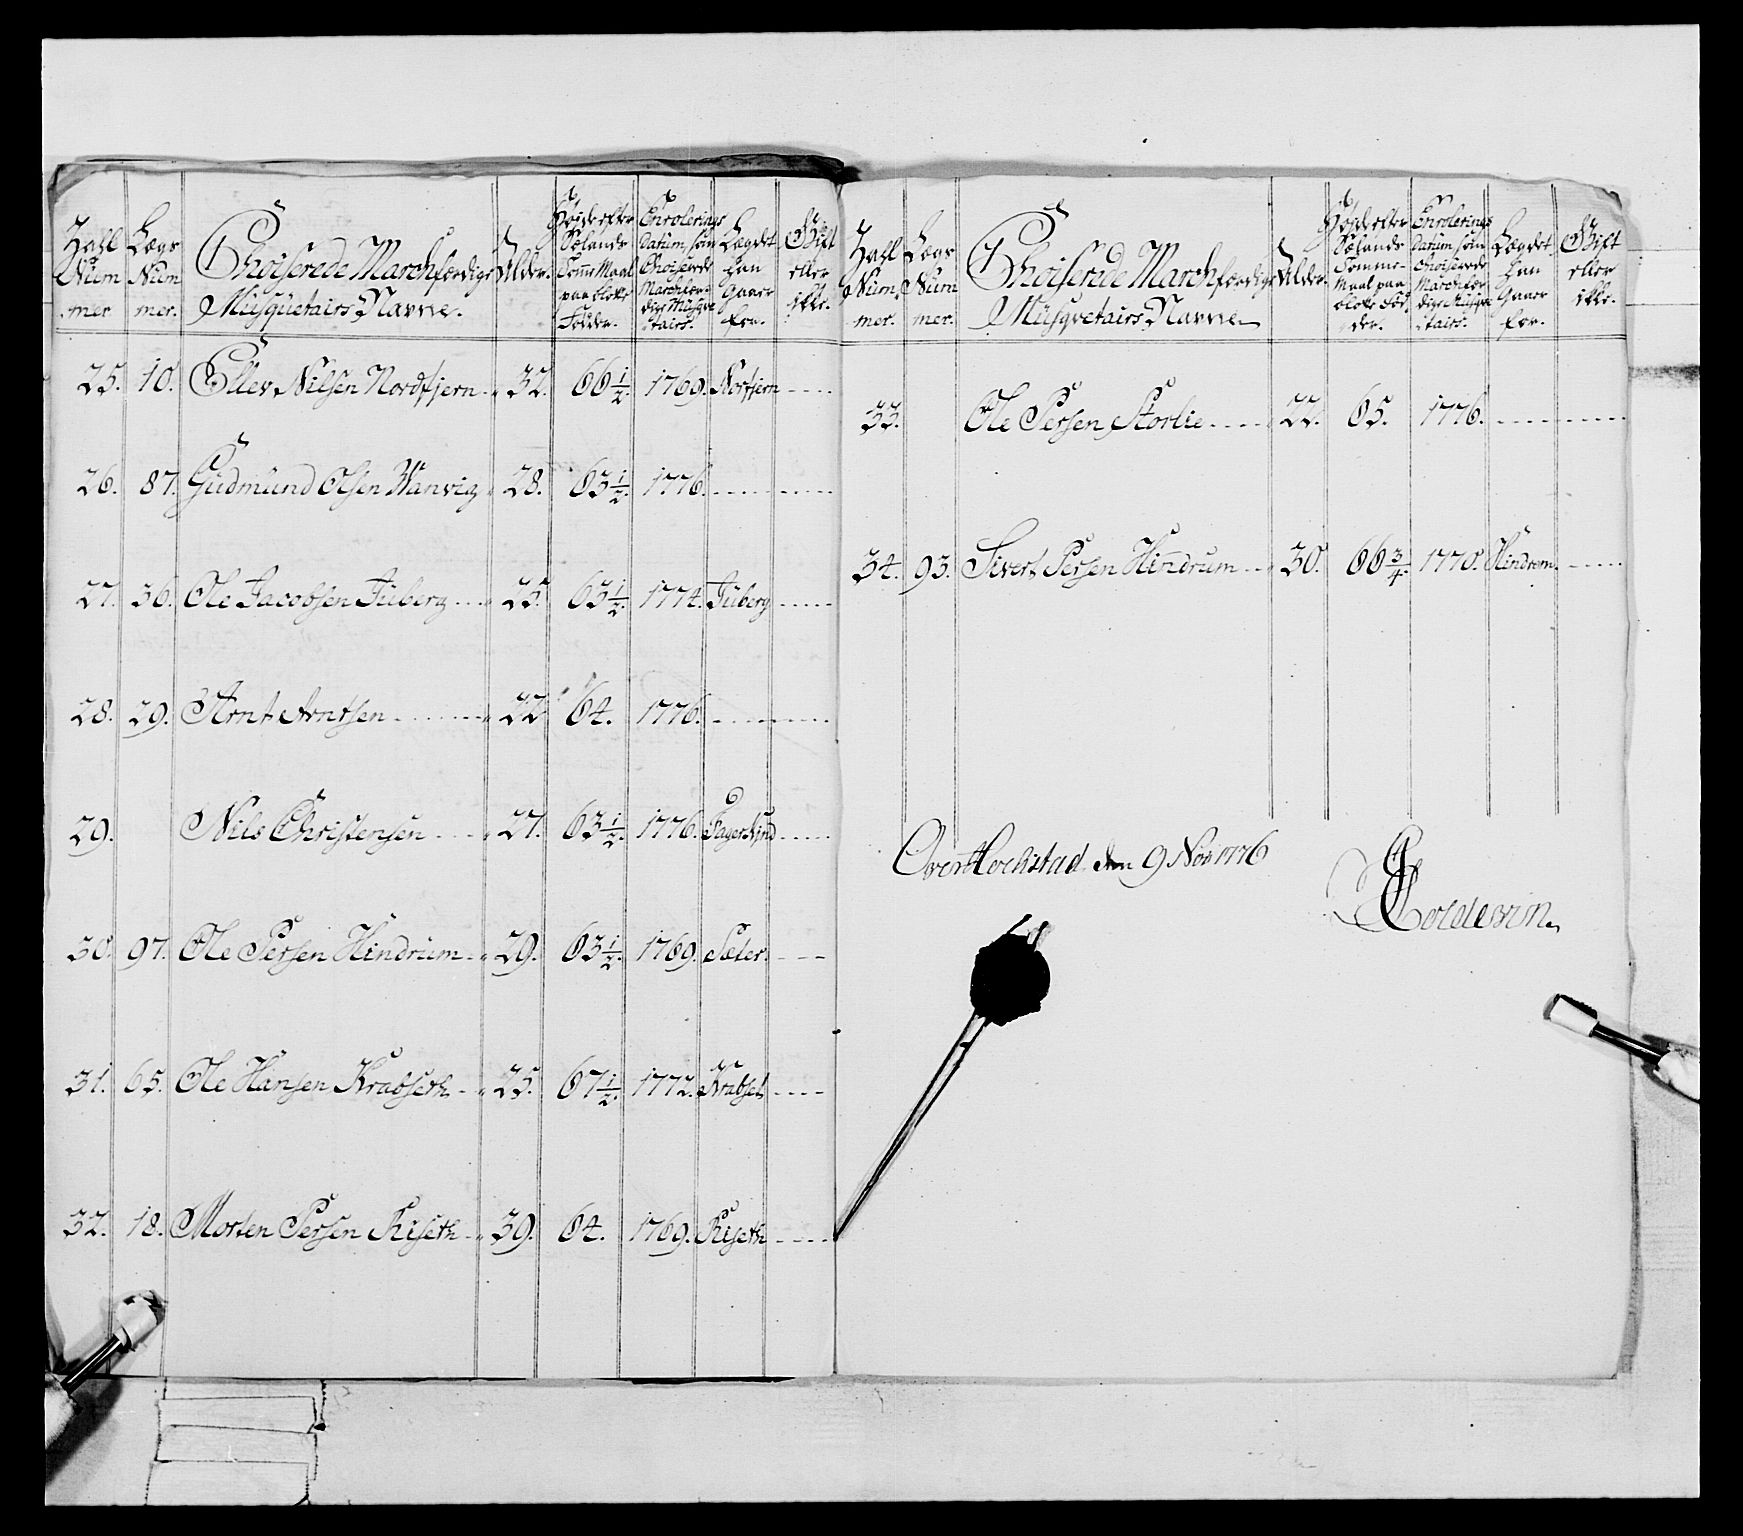 Zahl Num mer. | Lægs Num mer. | Choiserede Marchfærdige Musquetairs Navne. | Alder. | Højde efter Sælands Tomme Maal paa blotte Fødder. | Enrolerings Datum, som Choiserede Marchfær- dige Musqve tairs. | Lægdet han Gaaer for. | Gift eller ikke.
25. 10. Ellev Nilsen Nordfjern 32. 66 1/2. 1769. Norfjern
26. 87. Gudmund Olsen Wanvig 28. 63 1/2. 1776.
27. 36. Ole Jacobsen Juberg 25. 63 1/2. 1774. Juberg
28. 29. Arnt Arntsen 22 64. 1776.
29. Nils Christensen 27. 63 1/2. 1776.
30. 97. Ole Persen Hindrum 29. 63 1/2. 1769. Sæter.
31. 65. Ole Hansen Krabseth 25. 67 1/2. 1772. Krabset
32. 18. Morten Persen Riseth 39. 64. 1769. Riseth
Zahl Num. mer. | Lægs Num mer. | Choiserede Marchfærdige Musqvetairs Navne | Alder. | Højde efter Sælands Tomme- Maal paa blotte Fød der. | Enrolerings Datum, som Choiserede Marchfær dige Musqve tairs. | Lægdet han Gaaer for. | Gift eller ikke.
33. Ole Persen Storlie 22. 65. 1776.
34. 93. Sivert Persen Hindrum 30. 66 3/4. 1770. Hindrem.
den 9 Nov 1776
Coldevin